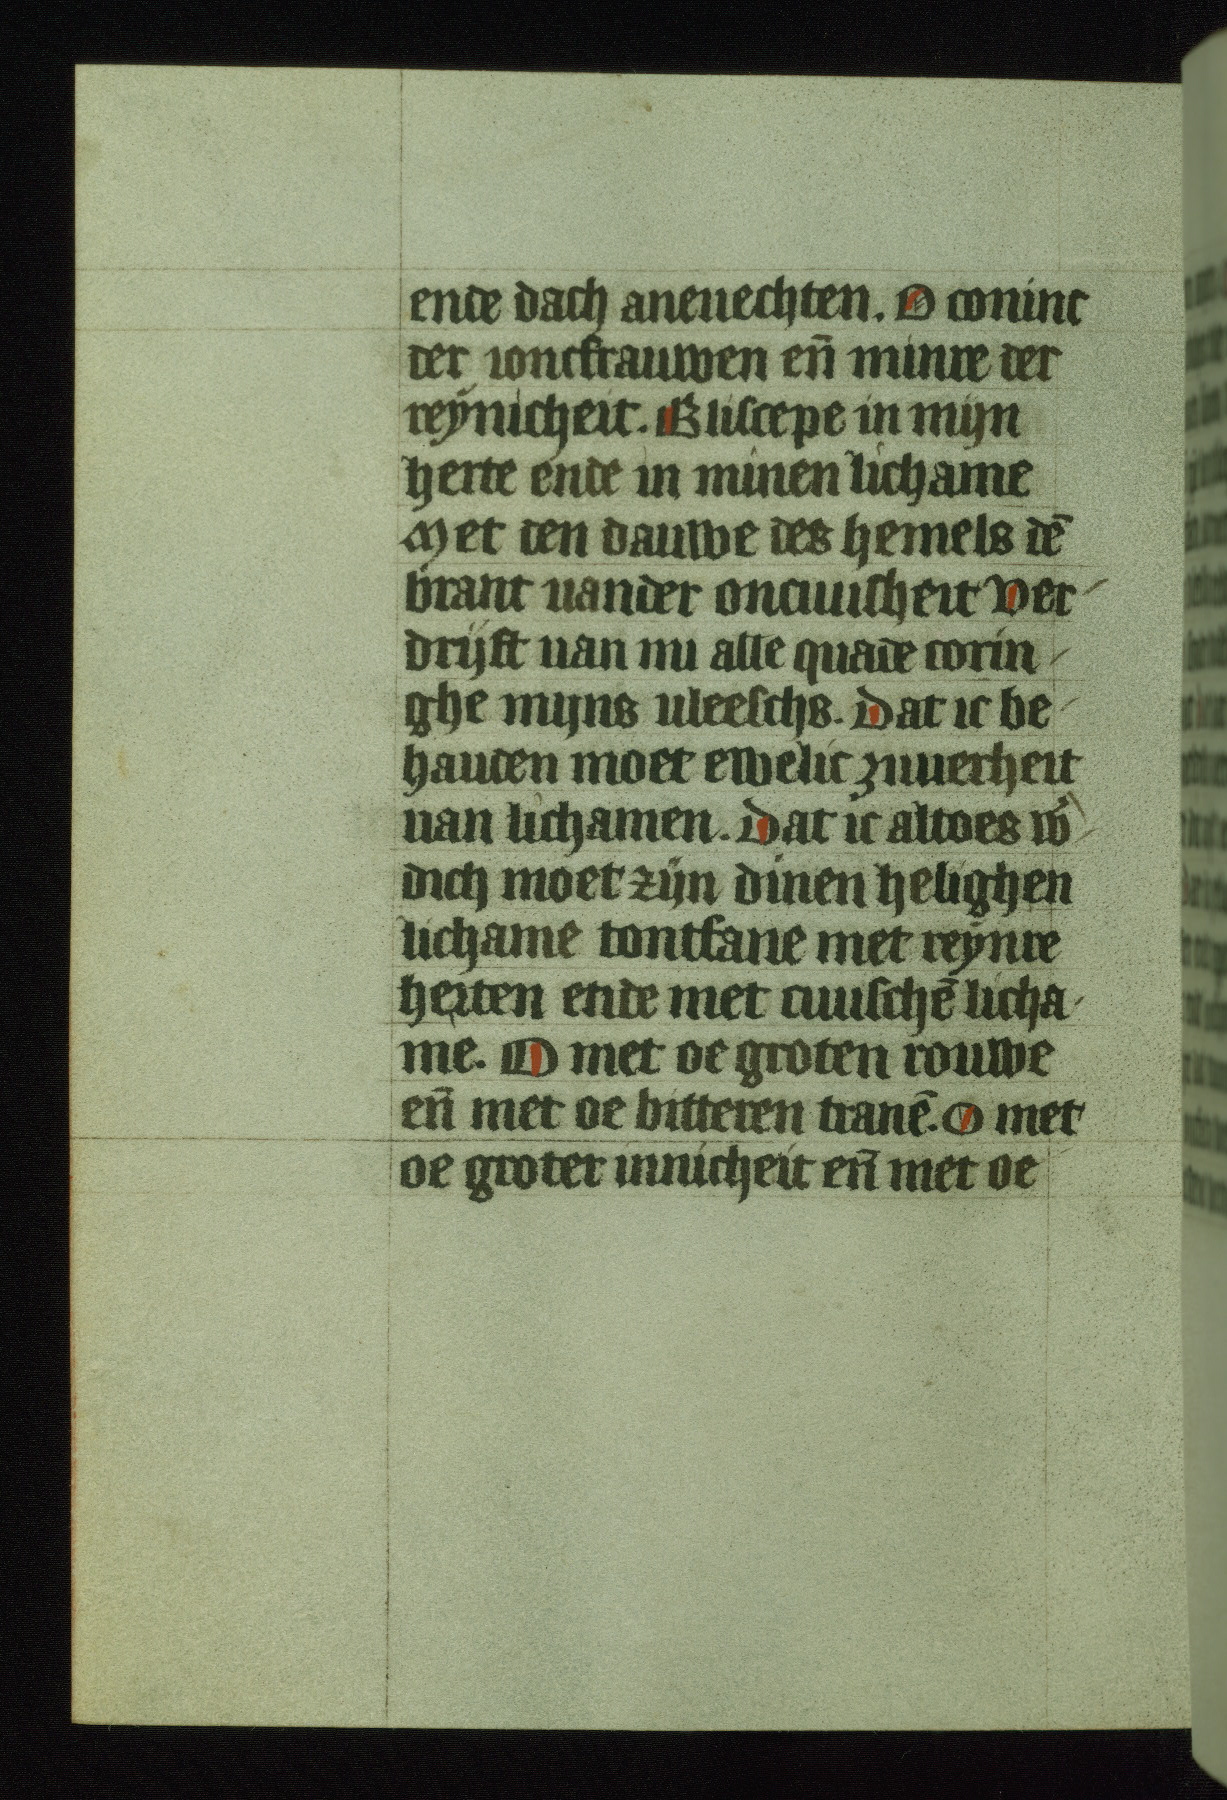 ende dach aneuechten. O coninc
der ioncfrauwen en̄ minre der
reynicheit. Bliscepe in mijn
herte ende in minen lichame
Met den dauwe des hemels dē
brant uander oncuuscheit Ver
drijft uan mi alle quade corin
ghe mijns uleeschs. Dat ic be
hauden moet ewelic zuuerheit
uan lichamen. Dat ic altoes w
dich moet zijn dinen helighen
lichame tontfane met reynre
herten ende met cuuschē licha
me. O met oe groten rouwe
en̄ met oe bitteren tranē. O met
oe groter innicheit en̄ met oe